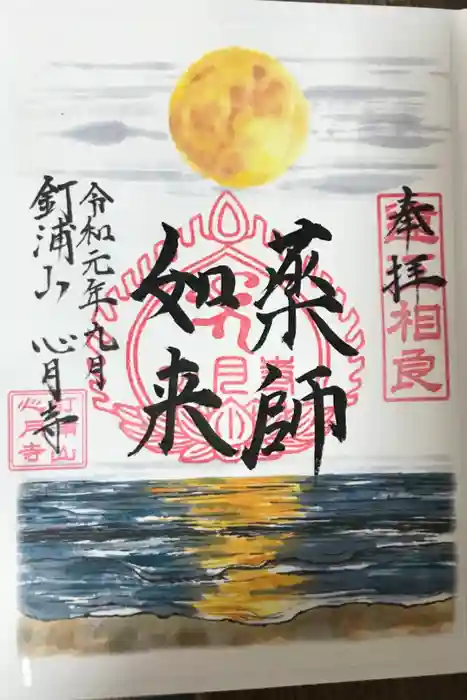 奉拝
遠相良
薬師
如来
令和元年九月
釘浦山 心月寺
釘浦山
心月寺